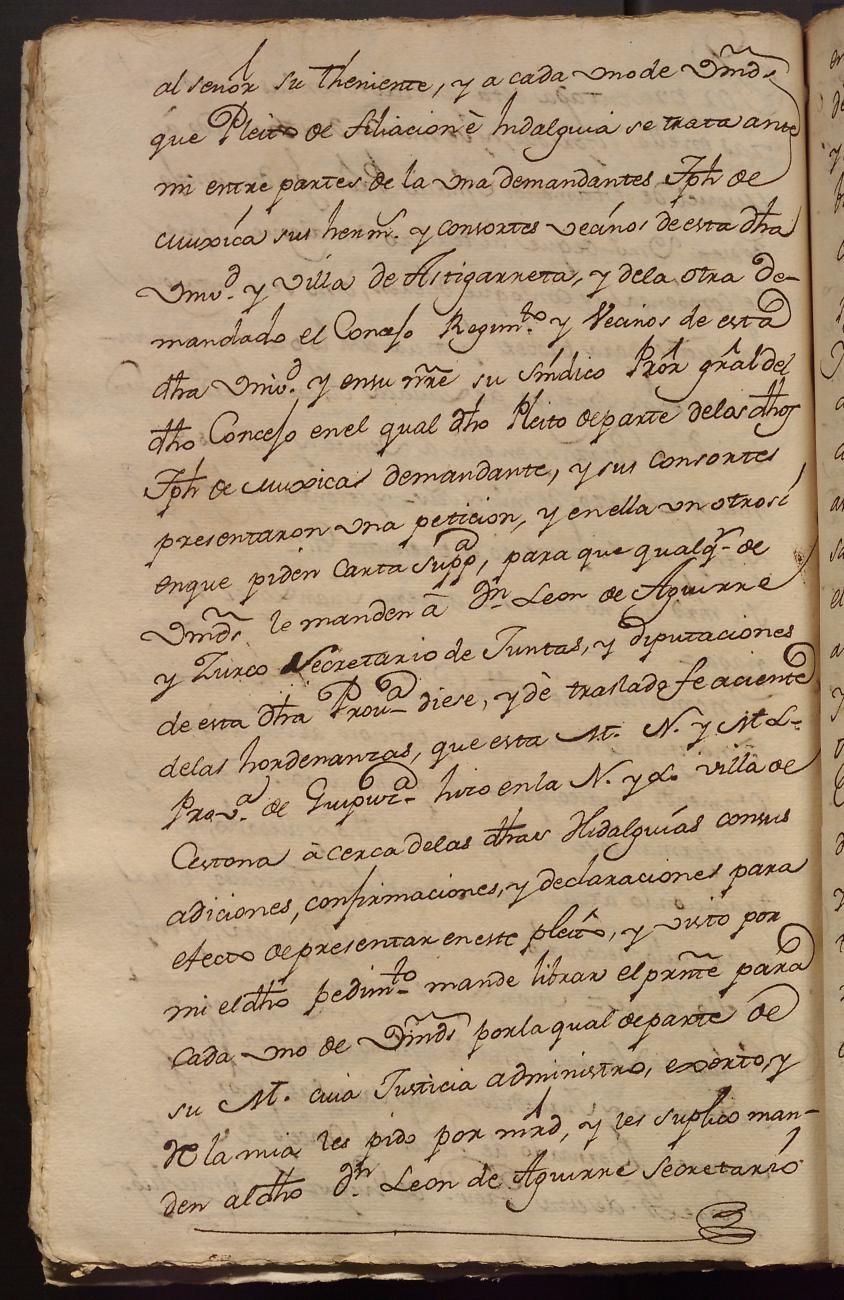 al señor su theniente, y a cada uno de Vmds.
que Pleito de filiacion è hidalguia se trata ante
mi entre partes de la una demandantes Jph de
Muxica sus herms. y consortes vecinos de esta dha
Univd. y villa de Astigarreta, y dela otra de-
mandado el Concejo Regimto. y Vecinos de esta
dha Univd. y ensu nre su síndico Pror gral del
dho Concejo en el qual dho Pleito de parte delos dhos
Jph de Muxica demandante, y sus consortes
presentaron una peticion, y en ella un otrosi
enque piden Carta supp.a, para que qualqr. de
Vmds. le manden â Dn. Leon de Aguirre
y Zurco Secretario de Juntas, y diputaciones
de esta dha Prova. diese, y dè traslado feaciente
delas hordenanzas, que esta M. N. y M. L.
Prova. de Guipuzca. hizo en la N. y L. villa de
Cestona à cerca delas dhas Hidalguías consus
adiciones, confirmaciones, y declaraciones para
efecto de presentar en este pleito, y visto por
mi el dho pedimto. mande librar el prnte para
cada uno de Vmds por la qual de parte de
su M. cuia Justicia administro, exorto, y
de la mia les pido por mrd, y les suplico man-
den al dho Dn. Leon de Aguirre Secretario